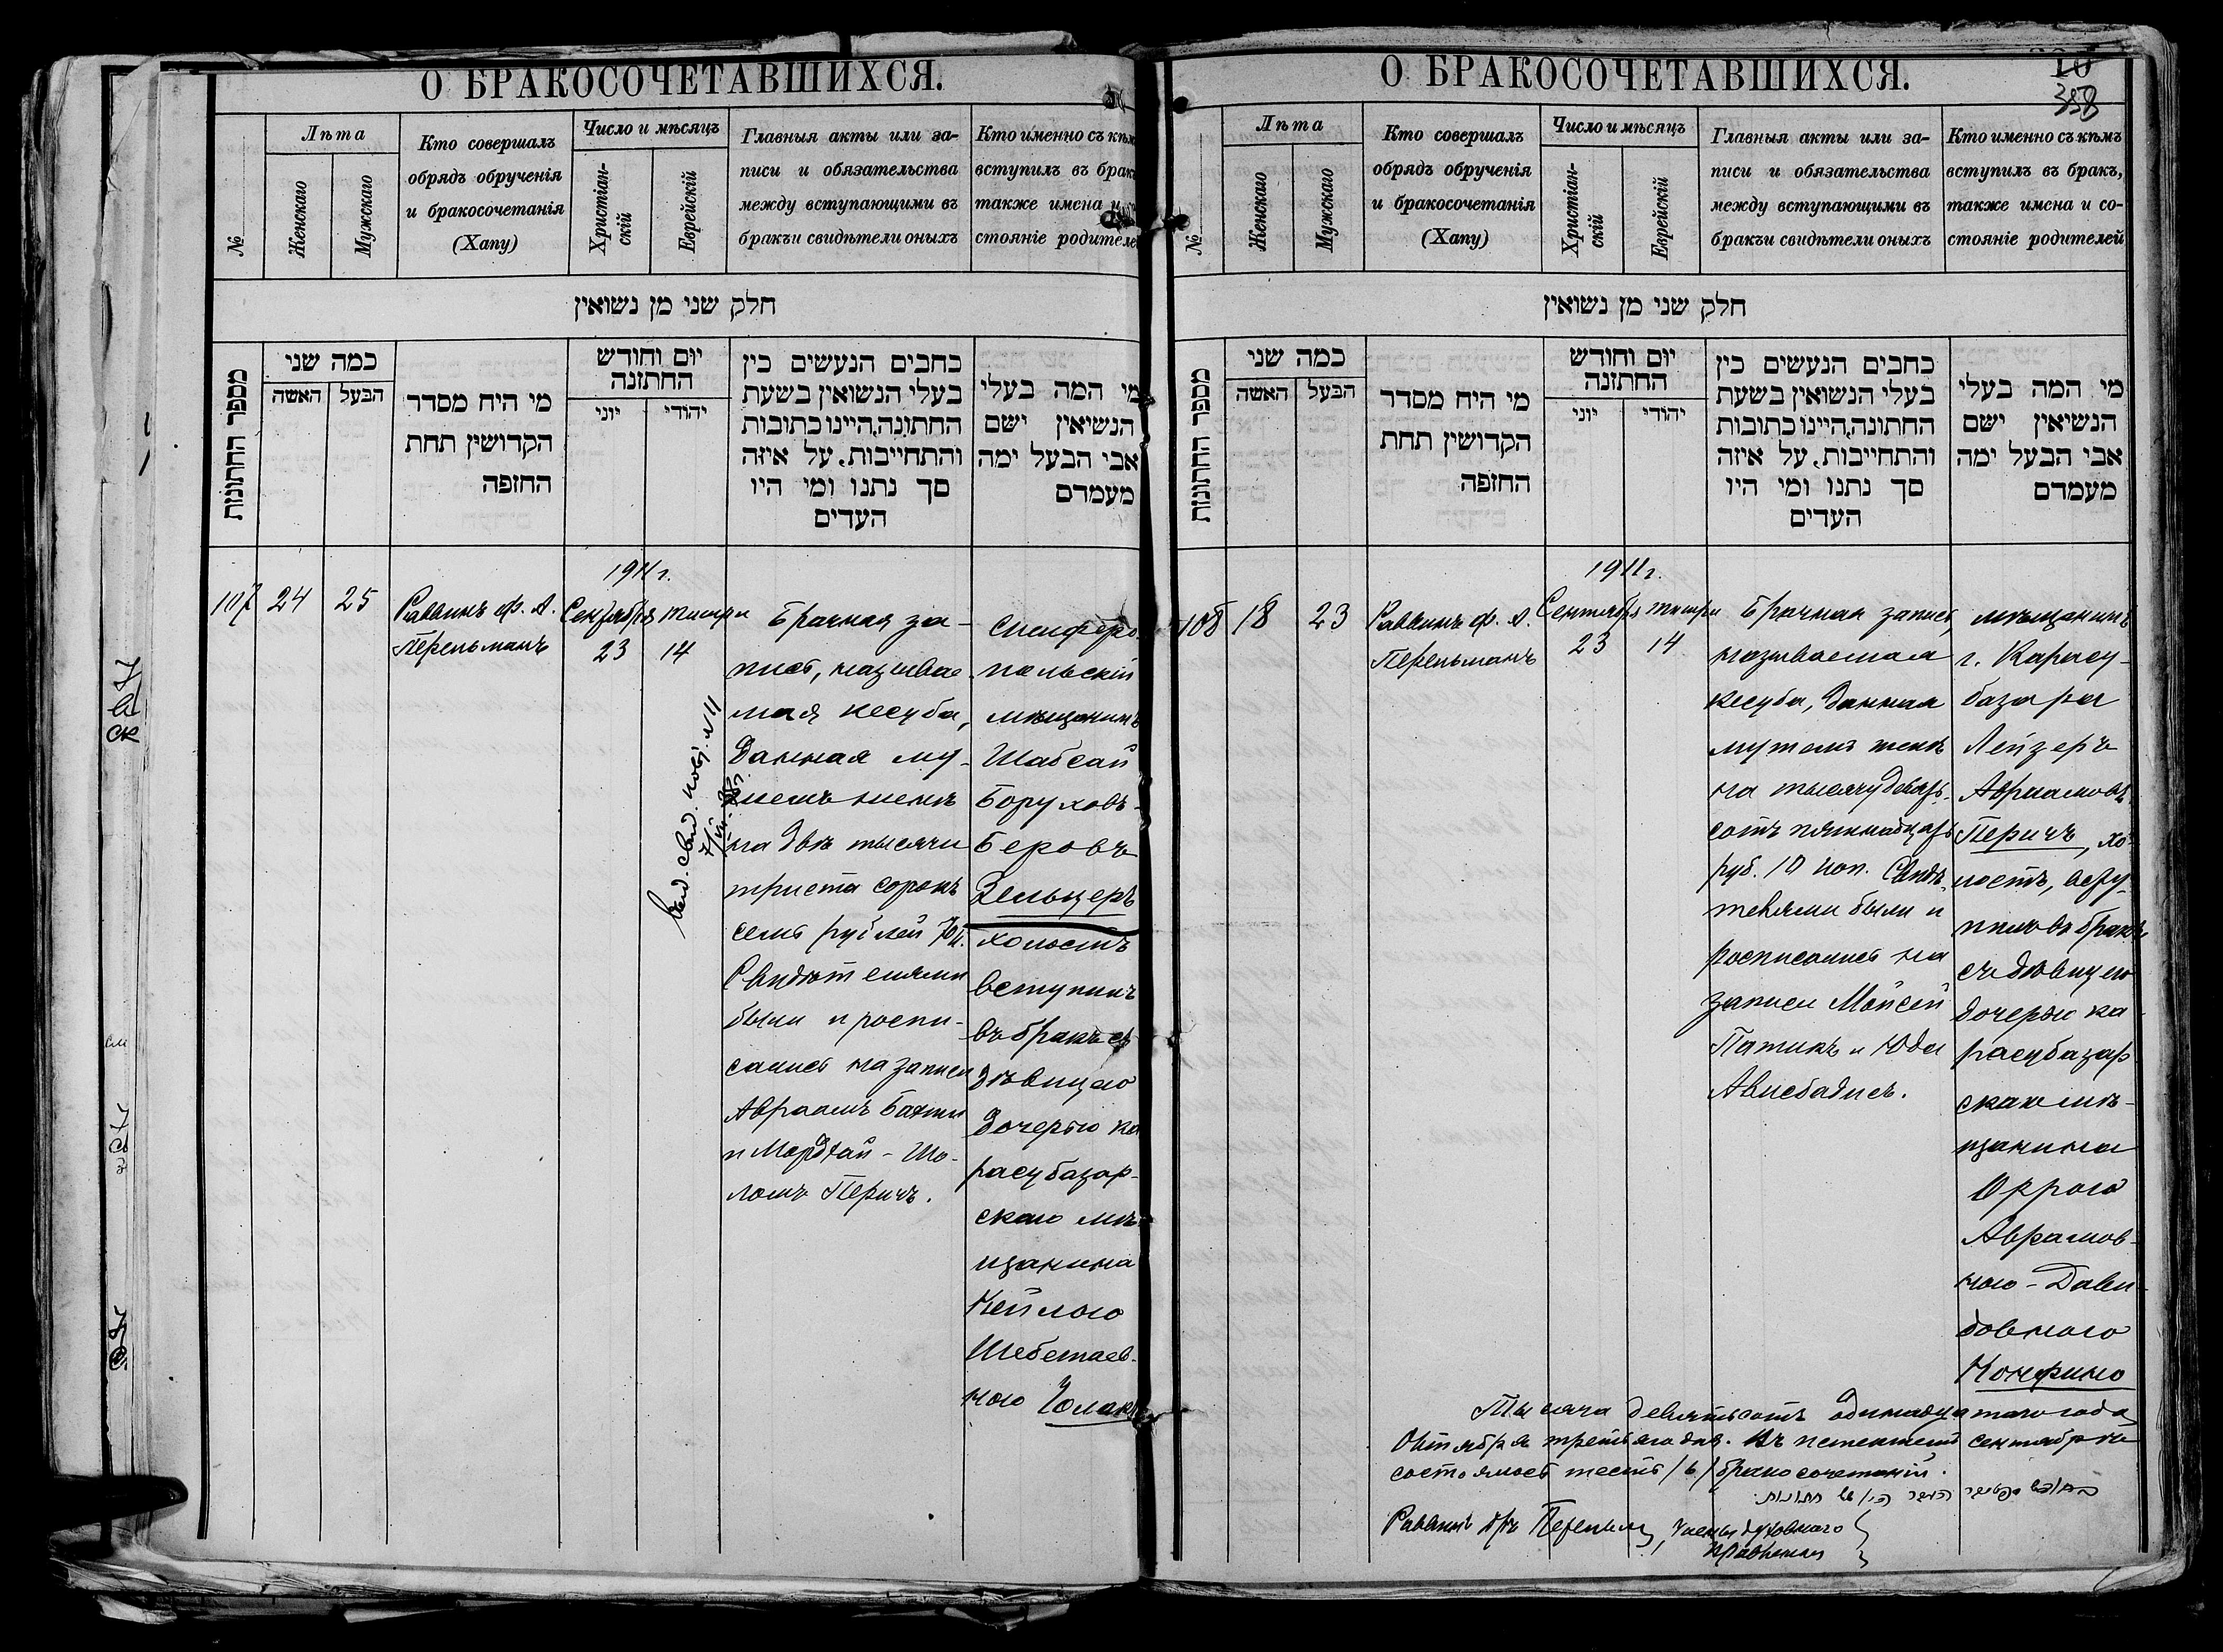 О БРАКОСОЧЕТАВШИХСЯ.
№
Лѣта
Женскаго
Мужскаго
Кто совершалъ
обрядъ обрученія
и бракосочетанія
(Хапу)
Число и мѣсяцъ
Христіан-
скій
Еврейскій
Главныя акты или за-
писи и обязательства
между вступающими въ
бракъи свидѣтели оныхъ
Кто именно съ кѣмъ
вступилъ въ бракъ
также имена и
стояніе родителе
חלק שני מן נשואין
מספר החתונות
כמה שני
האשה
הבעל
מי היח מסדר
הקדושין תחת
החזפה
יום וחודש
החתזנה
יוני
יהודי
כחבים הנעשים כין
בעלי הנשואין בשעת
החתונה,היינו כתובות
והתחייבות, על איזה
סך נתנו ומי היו
העדים
מי המה בעלי
הנשיאין ישם
אבי הבעל ימה
מעמדם
107
24
25
Раввинъ Ф. А.
Перельманъ
1911 г.
Сентября
23
Тишри
14
Брачная за-
пись, называе-
мая кесуба,
данная му-
жемъ женѣ
на двѣ тысячи
триста сорокъ
семь рублей 70 к.
Свидѣтелями
были и роспи-
сались на записи
Авраамъ Бахши
и Мордхай-Шо-
ломъ Перичъ.
Выд. свид. повт. № 11
Симферо-
польскій
мѣщанинъ
Шабсай
Боруховъ-
Беровъ
Зельцеръ
холостъ
вступилъ
въ бракъ съ
дѣвицею
дочерью ка
расубазар-
скаго мѣ-
щанина
Кейлою
Шебетаев-
ною Чолакъ
О БРАКОСОЧЕТАВШИХСЯ.
10
358
№
Лѣта
Женскаго
Мужскаго
Кто совершалъ
обрядъ обрученія
и бракосочетанія
(Хапу)
Число и мѣсяцъ
Христіан-
скій
Еврейскій
Главныя акты или за-
писи и обязательства
между вступающими въ
бракъи свидѣтели оныхъ
Кто именно съ кѣмъ
вступилъ въ бракъ,
также имена и со-
стояніе родителей
חלק שני מן נשואין
מספר החתונות
כמה שני
האשה
הבעל
מי היח מסדר
הקדושין תחת
החזפה
יום וחודש
החתזנה
יוני
יהודי
כחבים הנעשים כין
בעלי הנשואין בשעת
החתונה,היינו כתובות
והתחייבות, על איזה
סך נתנו ומי היו
העדים
מי המה בעלי
הנשיאין ישם
אבי הבעל ימה
מעמדם
108
18
23
Раввинъ Ф. А.
Перельманъ
1911 г.
Сентября
23
Тишри
14
Брачная запись,
называемая
кесуба, данная
мужемъ женѣ
на тысячу девять-
сотъ пятнадцать
руб. 10 коп. Свидѣ-
телями были и
росписались на
записи Мойсей
Патикъ и Юда
Ависбадисъ.
мѣщанинъ
г. Карасу-
базара
Лейзеръ
Авриамовъ
Перичъ, хо-
лостъ, всту-
пилъ въ бракъ
съ дѣвицею
дочерью ка-
расубазар
скаго мѣ-
щанина
Оррою
Аврамов-
ною-Дави-
довною
Конфино
Тысяча девятьсотъ одинадцатаго года
Октября третьяго дня. Въ истекшемъ сентябрѣ
состоялось шесть /6/ бракосочетаній.
Раввинъ Перельманъ, Члены духовнаго
Правленія